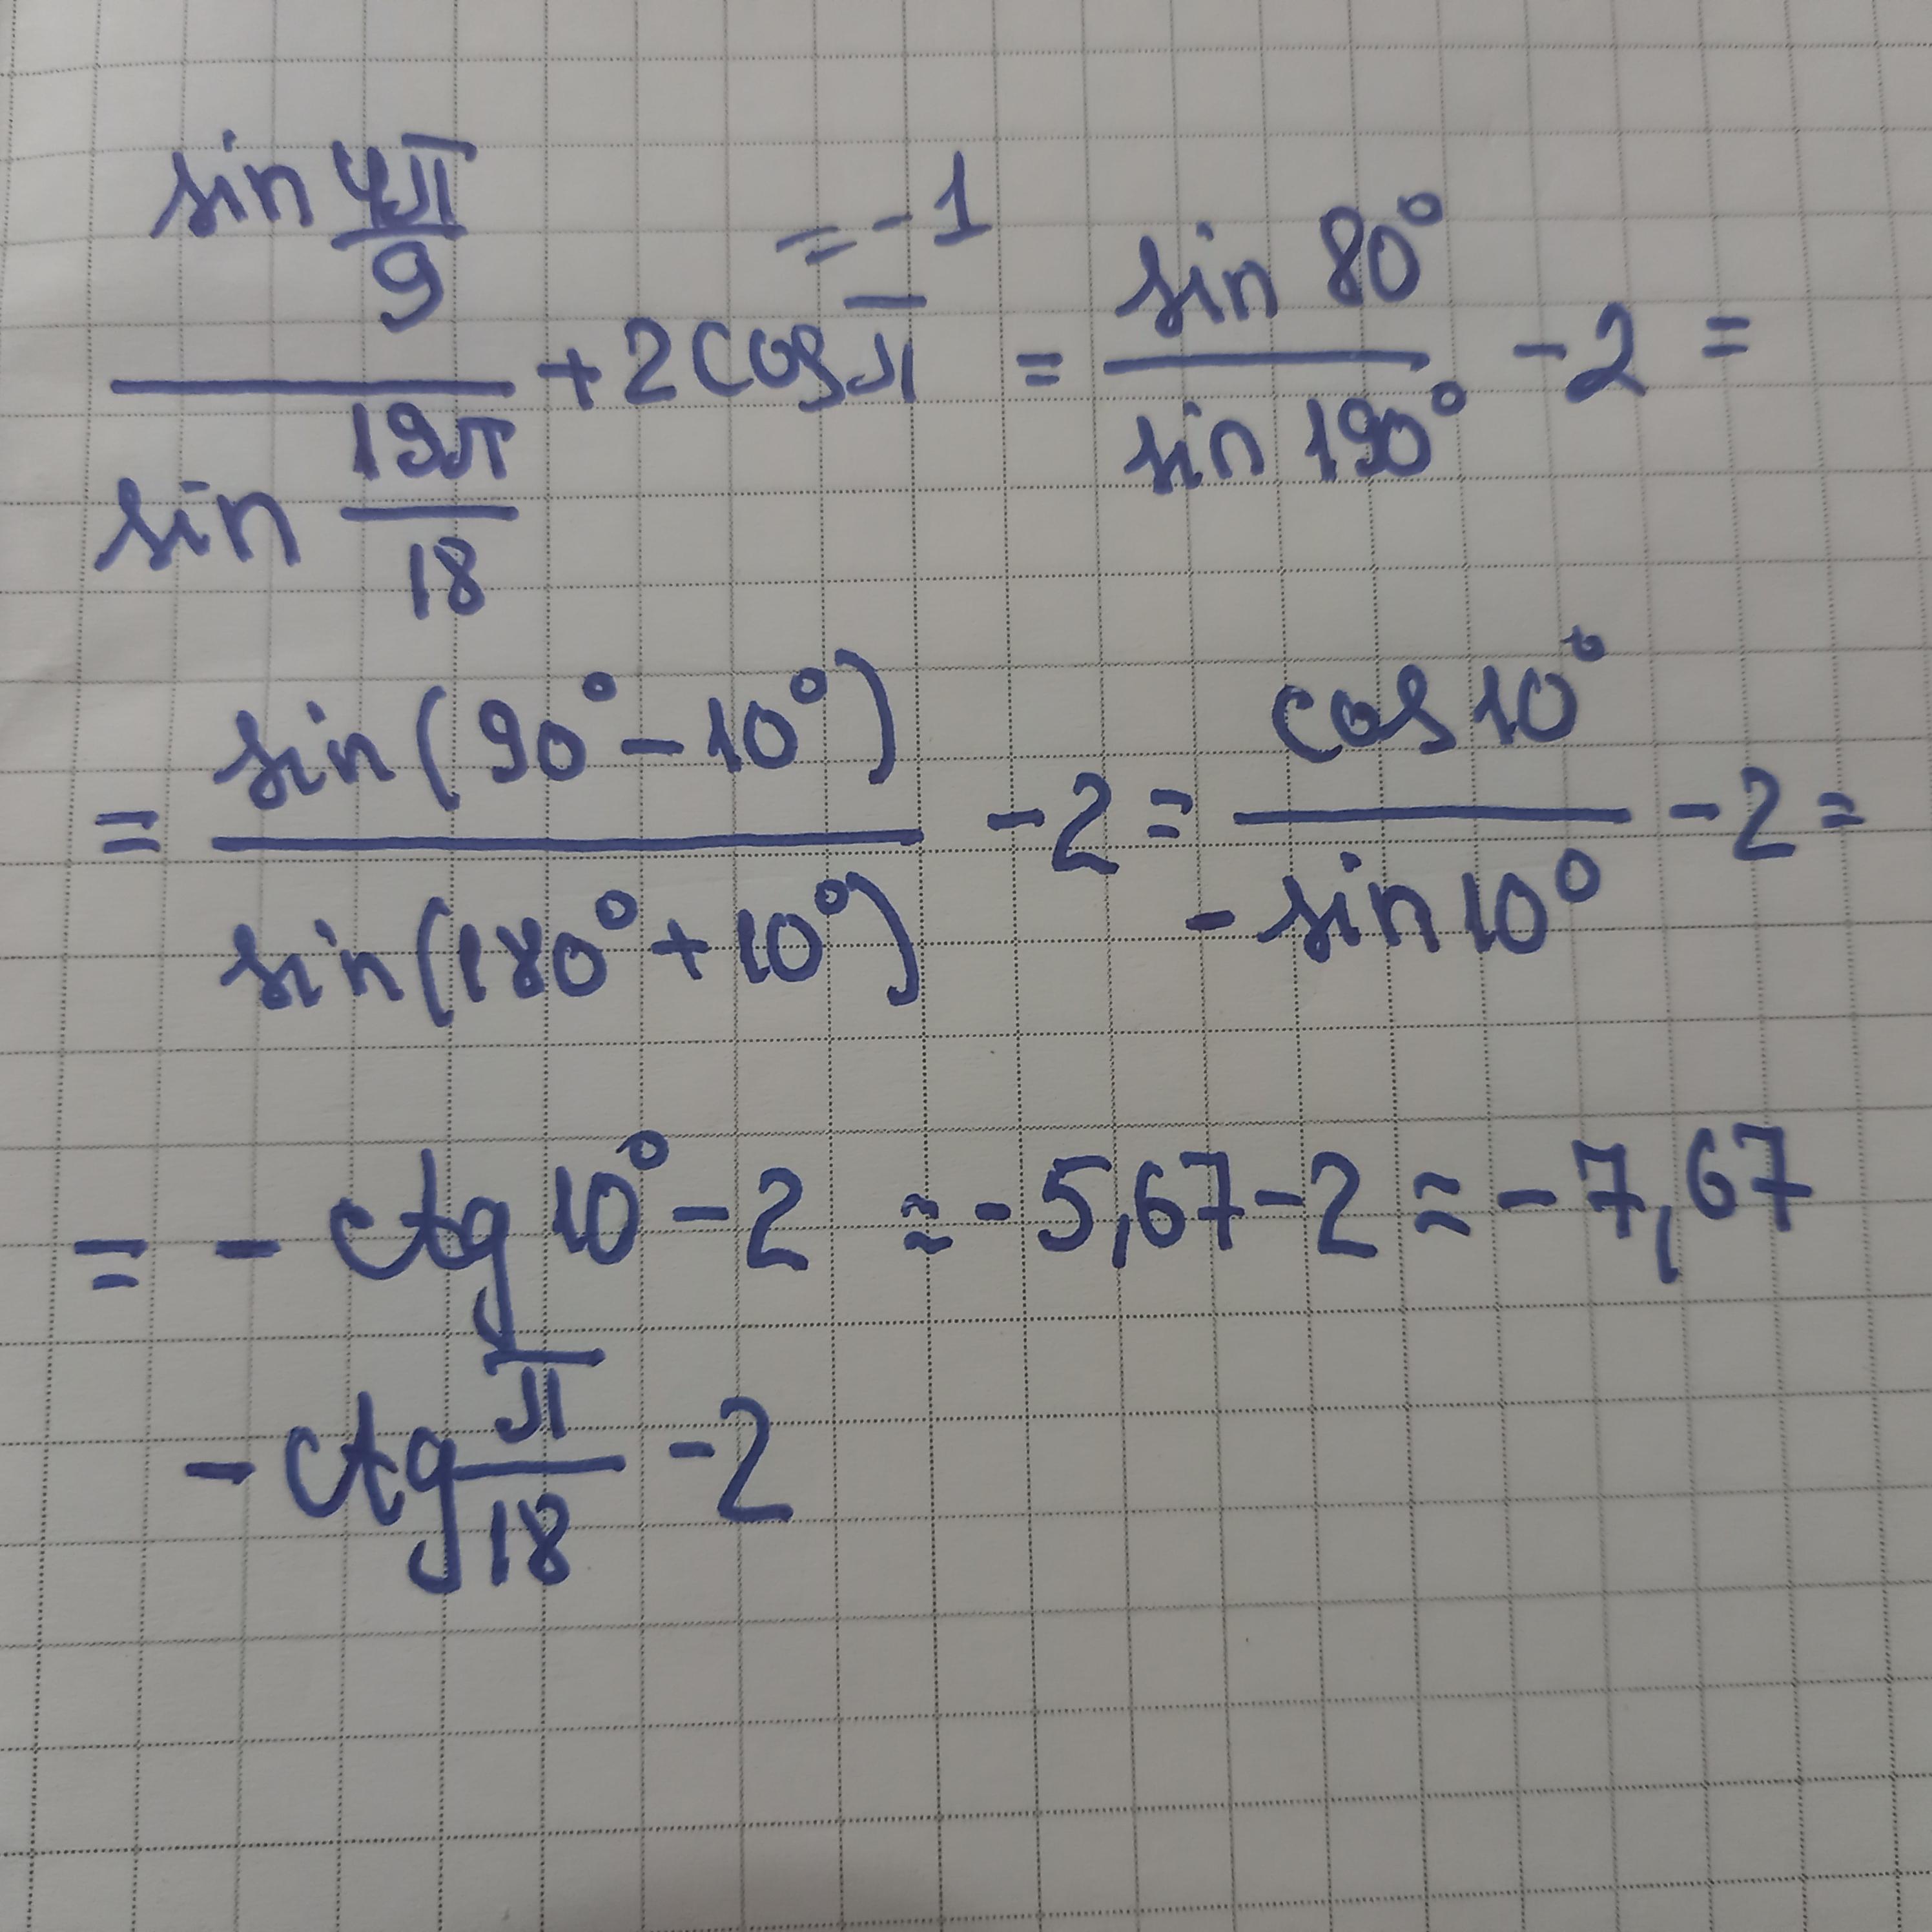 sin 4π/9 / sin 19π/18 + 2cosπ = sin 80° / sin 190° - 2 =
= -1
= sin(90° - 10°) / sin(180° + 10°) - 2 = cos 10° / -sin 10° - 2 =
= - ctg 10° - 2 ≈ - 5,67 - 2 ≈ - 7,67
- ctg π/18 - 2